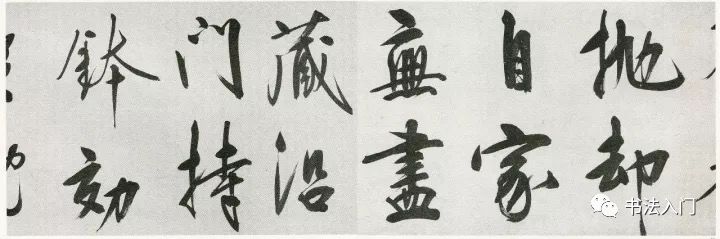 抛却
自家
無盡
藏沿
門持
鉢効
书法入门